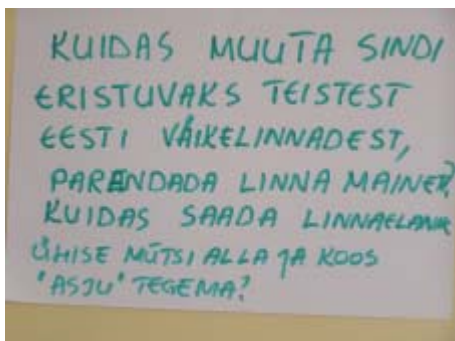 KUIDAS MUUTA SINDI
ERISTUVAKS TEISTEST
EESTI VÄIKELINNADEST,
PARENDADA LINNA MAINET?
KUIDAS SAADA
ÜHISE MÜTSI ALLA JA KOOS
"ASJU" TEGEMA?